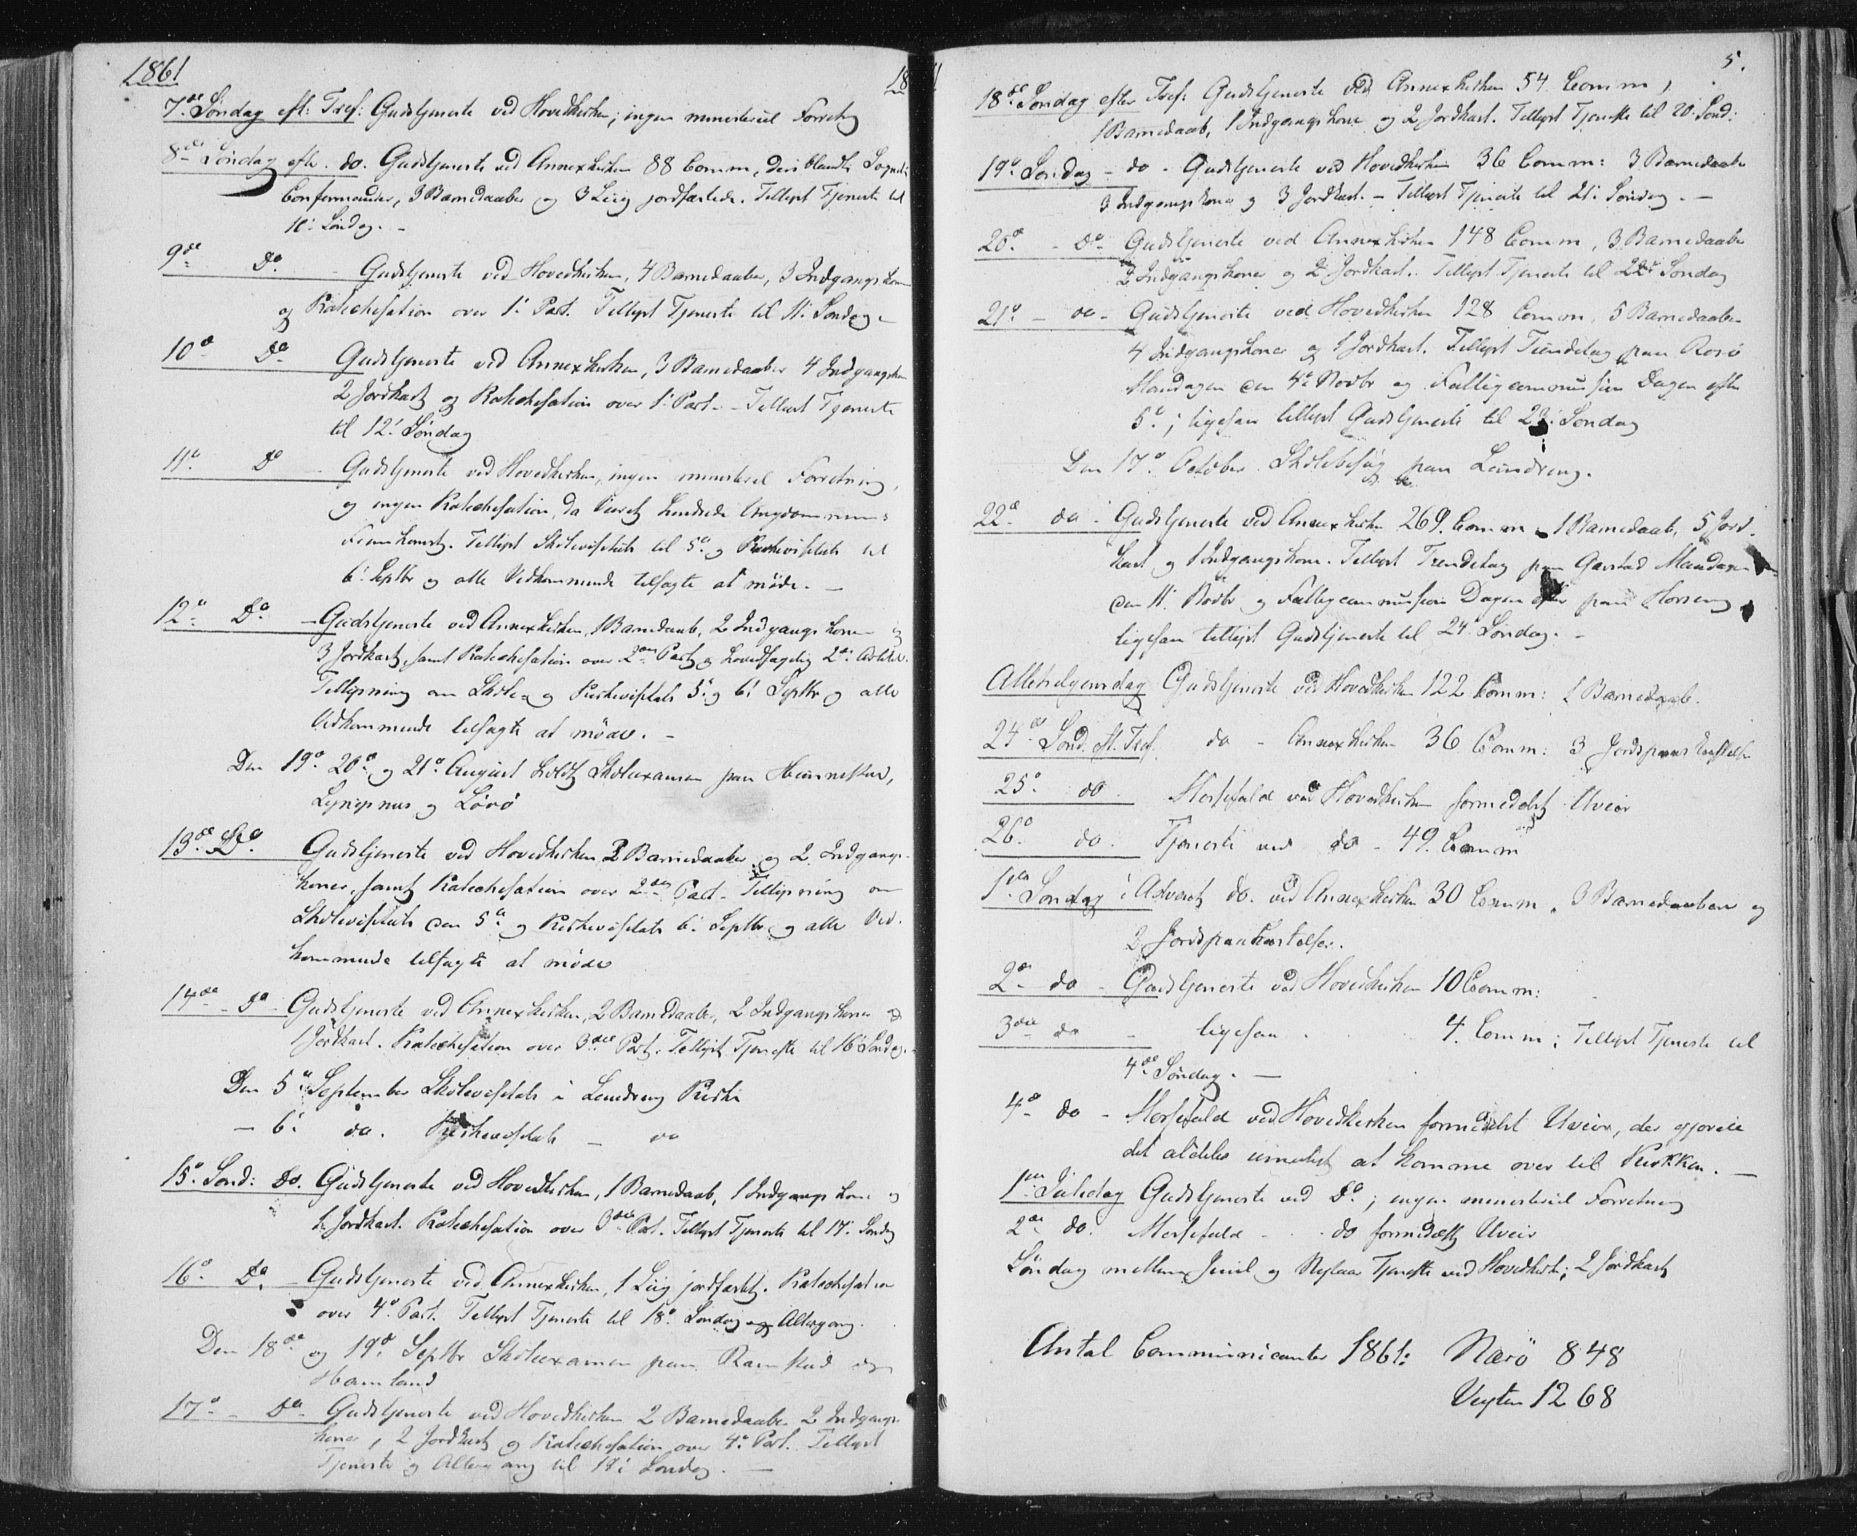 1861
7de Søndag eft: Tref: Gudstjeneste ved Hovedkirken; ingen ministeriel Forretng
8de Søndag efte. do. Gudstjeneste ved Annexkirken 88 Comm, deriblandt Sognets
Confirmander, 3 Barnedaaber og 3 Liig jordfæstede. Tillyst Tjeneste til
10: Søndag. -
9de Do. Gudstjeneste ved Hovedkirken, 4 Barnedaaber, 3 Indgangskoner
og Katechisation over 1: Part. Tillyst Tjeneste til 11: Søndag -
10de Do Gudstjeneste ved Annexkirken, 3 Barnedaaber 4 Indgangskoner
2 Jordkast og Katechisation over 1: Part - Tillyst Tjeneste
til 12: Søndag
11te Do Gudstjeneste ved Hovedkirken, ingen ministeriel Forretning,
og ingen Katechisation, da Veiret hindrede Ungdommens
Fremkomst. Tillyst Skolevisitats til 5te og Kirkevisitats til
6: Septbr og alle Vedkommende tilsagte at møde. -
12te Do - Gudstjeneste ved Annexkirken, 1 Barnedaab, 2 Indgangskoner og
3 Jordkast, samt Katechisation over 2den Part og 2den Artikel.
Tillysning om Skole og Kirkevisitats 5: og 6: Septbr og alle
Vedkommende tilsagte at møde. -
Den 19de 20de og 21de August holdt Skoleexamen paa
og Løvø
13de Do. Gudstjeneste ved Hovedkirken 2 Barnedaaber og 2 Indgangs-
koner, samt Katechisation over 2den Part - Tillysning om
Skolevisitats den 5te og Kirkevisitats 6: Septbr og alle Ved-
kommende tilsagte at møde
14de - Do - Gudstjeneste ved Annexkirken, 2 Barnedaaber, 2 Indgangskoner og
1 Jordkast. Katechisation over 3die Part. Tillyst Tjeneste til 16 Søndag. -
Den 5te September Skolevisitats i Kirke
- 6: do. Kirkevisitats - do
15de Sønd: Do. Gudstjeneste ved Hovedkirken, 1 Barnedaab, 1 Indgangskone og
Jordkast. Katechisation over 3die Part. Tillyst Tjeneste til 17: Søndag
16de Do - Gudstjeneste ved Annexkirken, 1 Liig jordfæstet. Katechisation
over 4de Part. Tillyst Tjeneste til 18de Søndag og Altergang.
Den 18de og 19de Septbr Skoleexamen paa og
17de - Do - Gudstjeneste ved Hovedkirken 2 Barnedaaber 2 Indgangs-
koner, 2 Jordkast og Katechisation over 4de Part. Tillyst
Tjeneste og Altergang til 19: Søndag. -
5.
18de Søndag efter Tref: Gudstjeneste ved Annexkirken 54 Comm,
1 Barnedaab, 1 Indgangskone og 2 Jordkast. Tillyst Tjeneste til 20. Sønd:
19de Søndag - do - Gudstjeneste ved Hovedkirken 36 Comm: 3 Barnedaaber
3 Indgangskoner og 3 Jordkast. - Tillyst Tjeneste til 21: Søndag. -
20de - Do Gudstjeneste ved Annexkirken 148 Comm, 3 Barnedaaber
2 Indgangskoner og 2 Jordkast. Tillyst Tjeneste til 22de Søndag
21de - do - Gudstjeneste ved Hovedkirken 128 Comm, 5 Barnedaaber
4 Indgangskoner og 1 Jordkast. Tillyst Tiendetag paa
Mandagen den 4de Novbr og Fattigcommission Dagen efter
5te; ligesaa tillyst Gudstjeneste til 23: Søndag
Den 17de October Skolebesøg paa
22de do - Gudstjeneste ved Annexkirken 269 Comm, 1 Barnedaab, 5 Jord-
kast og 1 Indgangskone. Tillyst Tiendetag paa Mandagen
den 11: Novbr og Fattigcommission Dagen efter paa
ligesaa tillyst Gudstjeneste til 24: Søndag. -
Allehelgensdag Gudstjeneste ved Hovedkirken 122 Comm: 1 Barnedaab.
24de Sønd. eft. Tref. do - Annexkirken 36 Comm: 3 Jordspaakastelser
25de do Messefald ved Hovedkirken formedelst Uveir
26de do. Tjeneste ved do - 49 Comm
1ste Søndag i Advent do. ved Annexkirken 30 Comm, 3 Barnedaaber og
2 Jordspaakastelser.
2den do - Gudstjeneste ved Hovedkirken 10 Comm:
3die do - ligesaa 4 Comm; Tillyst Tjeneste til
4de Søndag. -
4de do - Messefald ved Hovedkirken formedelst Uveir, der gjorde
det aldeles umuligt at komme over til Kirken. -
1ste Juledag Gudstjeneste ved Do; ingen ministeriel Forretning
2den do. Messefald - do formedelst Uveir
Søndag mellem Juul og Nytaar Tjeneste ved Hovedkirk; 2 Jordkast
Antal Communicanter 1861: Nærö 848
1268